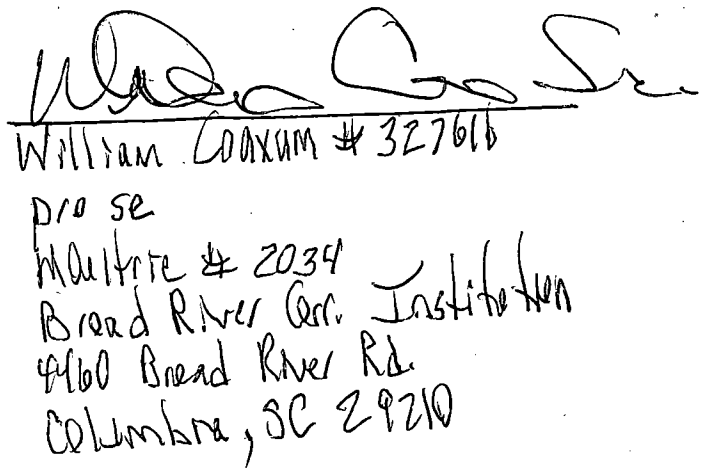 William Coaxum # 327616
pro se
Moultrie # 2034
Broad River Corr. Institution
4460 Broad River Rd.
Columbia, SC 29210